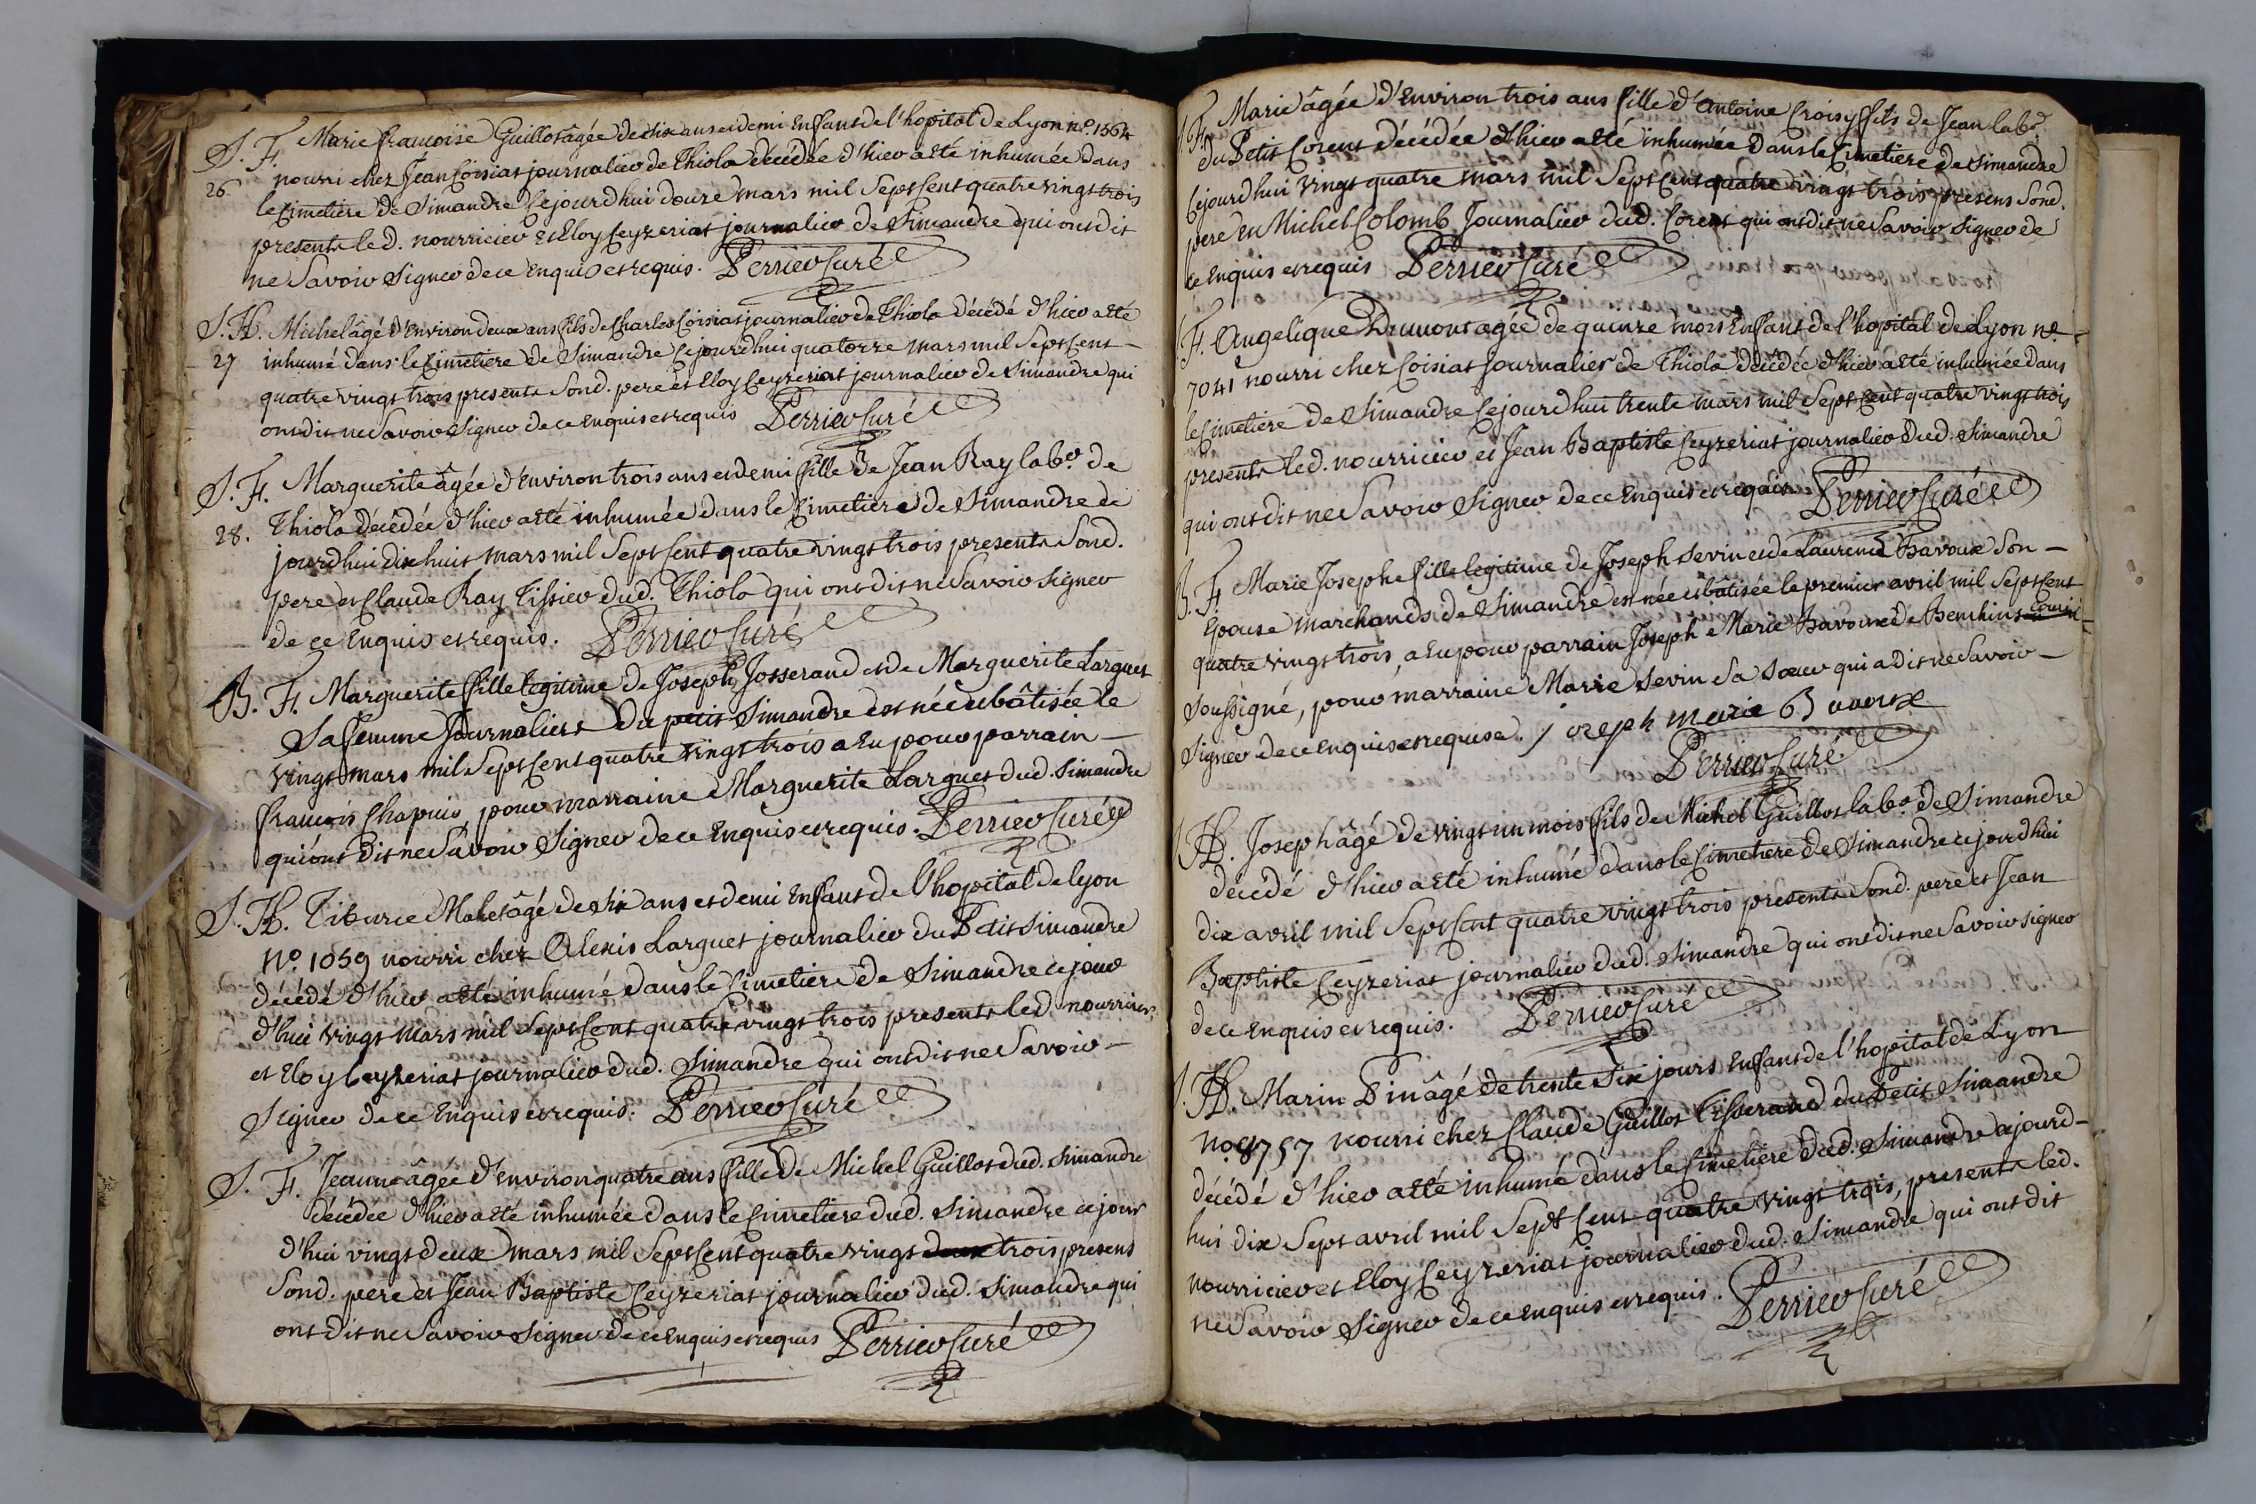 S. F. Marie francoise Guillot âgée de dix ans et demi Enfant de l'hopital de Lyon n.º 1564
26 nourri chez Jean Coisiat journalier de Thiola décédée d'hier a eté inhumée dans
le Cimetiere de Simandre Cejourdhui douze mars mil Sept Cent quatre vingt trois
presents led. nourricier et Eloy Ceyzeriat journalier de Simandre qui ont dit
ne Savoir Signer de ce Enquis et requis. Perrier Curé
S. H. Michel âgé d'Environ deux ans fils de Charles Coisiat journalier de Thiola décédé d'hier a eté
27 inhumé dans le Cimetiere de Simandre Cejourdhui quatorze mars mil Sept Cent
quatre vingt trois presents Sond. pere et Eloy Ceyzeriat journalier de Simandre qui
ont dit ne Savoir Signer de ce Enquis et requis Perrier Curé
S. F. Marguerite âgée d'Environ trois ans et demi fille de Jean Ray labr. de
28. Thiola décédée d'hier a eté inhumée dans le Cimetiere de Simandre ce
jourdhui dix huit mars mil Sept Cent quatre vingt trois presents Sond.
pere et Claude Ray Tissier dud. Thiola qui ont dit ne Savoir Signer
de ce Enquis et requis. Perrier Curé
B. F. Marguerite fille legitime de Joseph Josserand et de Marguerite Larguet
Sa femme Journaliers du petit Simandre est née et bâtisée le
vingt mars mil Sept Cent quatre vingt trois a Eu pour parrain
francois Chapuis, pour marraine Marguerite Larguet dud. Simandre
qui ont dit ne Savoir Signer de ce Enquis et requis. Perrier Curé
S. H. Tiburce Mahet âgé de dix ans et demi Enfant de l'hopital de Lyon
Nº. 1059 nourri chez Alexis Larguet journalier du Petit Simandre
décédé d'hier a eté inhumé dans le Cimetiere de Simandre ce jour
d'hui vingt mars mil Sept Cent quatre vingt trois presents led. nourricier,
et Eloy Ceyzeriat journalier dud. Simandre qui ont dit ne Savoir
Signer de ce Enquis et requis. Perrier Curé
S. F. Jeanne âgée d'Environ quatre ans fille de Michel Guillot dud. Simandre
décédée d'hier a eté inhumée dans le Cimetiere dud. Simandre ce jour
d'hui vingt deux mars mil Sept Cent quatre vingt deux trois presens
Sond. pere et Jean Baptiste Ceyzeriat journalier dud. Simandre qui
ont dit ne Savoir Signer de ce Enquis et requis Perrier Curé
S. F. Marie âgée d'Environ trois ans fille d'Antoine Croisy fils de Jean labr.
du Petit Corent décédée d'hier a eté inhumée dans le Cimetiere de Simandre
Cejourdhui vingt quatre mars mil Sept Cent quatre vingt trois presens Sond.
pere En Michel Colomb Journalier dud. Corent qui ont dit ne Savoir Signer de
ce Enquis et requis Perrier Curé
F. Angelique Drumont agée de quinze mois Enfant de l'hopital de Lyon nº.
7041 nourri chez Coisiat Journalier de Thiola décédée d'hier a eté inhumée dans
le Cimetiere de Simandre Cejourdhui trente mars mil Sept Cent quatre vingt trois
presents led. nourricier et Jean Baptiste Ceyzeriat journalier dud. Simandre
qui ont dit ne Savoir Signer de ce Enquis et requis Perrier Curé
B. F. Marie Josephe fille legitime de Joseph Sevin et de Laurence Bavoux Son
Epouse marchands de Simandre est née et bâtisée le premier avril mil Sept Cent
quatre vingt trois, a Eu pour parrain Joseph Marie Bavoux de
Soussigné, pour marraine Marie Sevin Sa Soeur qui a dit ne Savoir
Signer de ce Enquise et requise. joseph marie Bavoux
Perrier Curé
H. Joseph âgé de vingt un mois fils de Michel Guillot labr. de Simandre
décédé d'hier a eté inhumé dans le Cimetiere de Simandre ce jourdhui
dix avril mil Sept Cent quatre vingt trois presents Sond. pere et Jean
Baptiste Ceyzeriat journalier dud. Simandre qui ont dit ne Savoir Signer
de ce Enquis et requis. Perrier Curé
H. Marin Pin âgé de trente Six jours Enfant de l'hopital de Lyon
no. 8757 nourri chez Claude Guillot Tisserand du Petit Simandre
décédé d'hier a eté inhumé dans le Cimetiere dud. Simandre cejourd-
hui dix Sept avril mil Sept Cent quatre vingt trois, presents led.
nourricier et Eloy Ceyzeriat journalier dud. Simandre qui ont dit
ne Savoir Signer de ce Enquis et requis. Perrier Curé